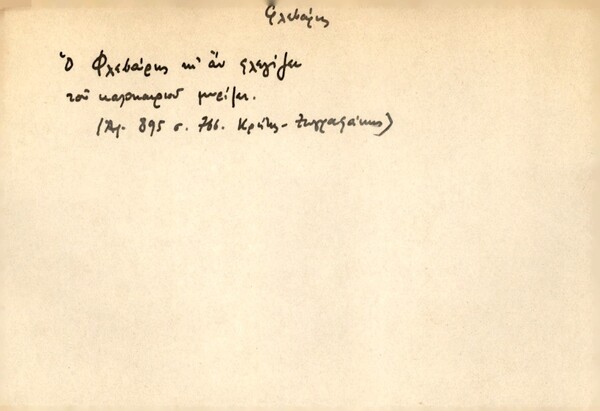 Φλεβάρης
Ὁ Φλεβάρης κι' ἂν φλεγίζει
τοῦ καλοκαιριοῦ μυρίζει.
(Ἀρ. 895 σ. 766. Κρήτη - Ζωγραφάκης)